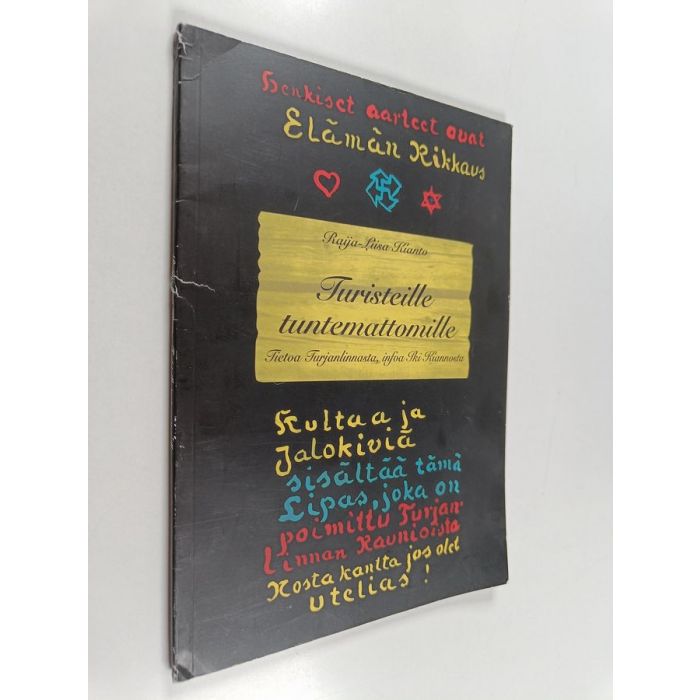 Henkiset aarteet ovat
Elämän Rikkaus
Raija-Liisa Kianto
Turisteille
tuntemattomille
Tietoa Turjanlinnasta, infoa Iki Kiannosta
Kultaa ja
Jalokiviä
sisältää tämä
Lipas, joka on
poimittu Turjan-
Linnan Raunioista
Nosta kantta jos olet
utelias!